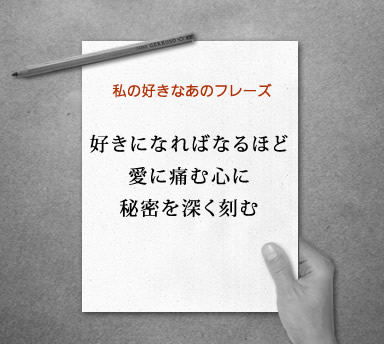 私の好きなあのフレーズ
好きになればなるほど
愛に痛む心に
秘密を深く刻む